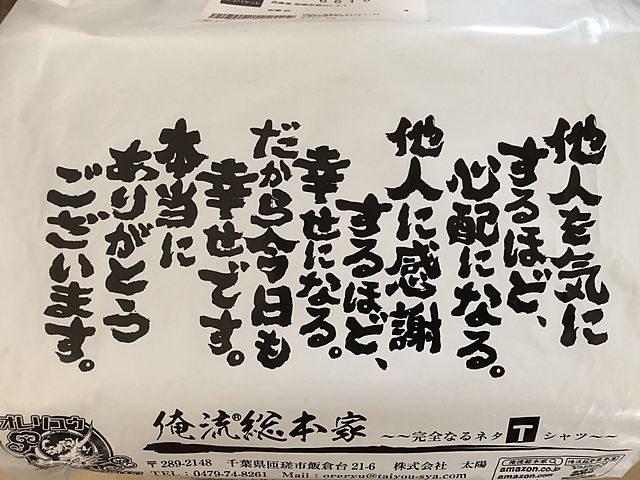 他人を気に
するほど、
心配になる。
他人に感謝
するほど、
幸せになる。
だから今日も
幸せです。
本当に
ありがとう
ございます。
オレリュウ
俺流®総本家 ～～完全なるネタTシャツ～～
〒289-2148 千葉県匝瑳市飯倉台21-6 株式会社 太陽
TEL：0479-74-8261 Mail：oreryu@taiyou-sya.com
俺流総本家
amazon.co.jp
amazon.com